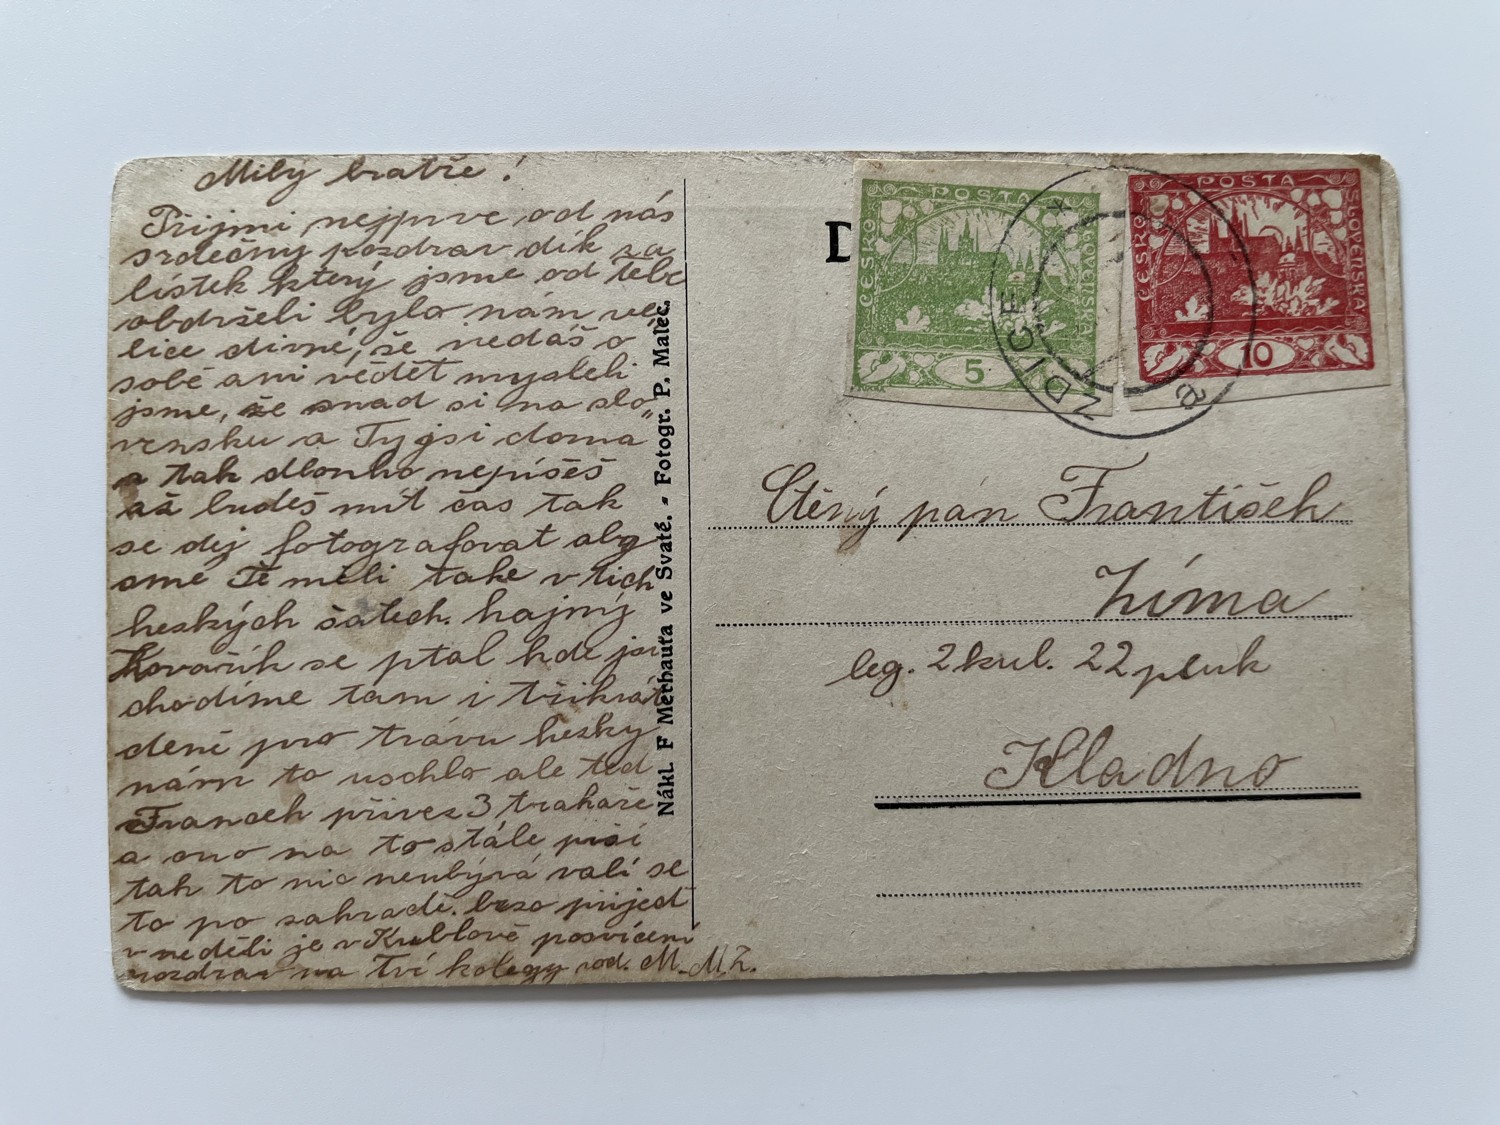 Milý bratře!
Přijmi nejprve od nás
srdečný pozdrav dík za
lístek který jsme od tebe
obdrželi bylo nám ve
lice divné, že nedáš o
sobě ani vědět mysleli
jsme, že snad si na slo„
vensku a Ty jsi doma
a tak dlouho nepíšeš
až budeš mít čas tak
se dej fotografovat aby
sme Tě měli take v tich
heských šatech. hajný
Kovařík se ptal kde jsi
chodíme tam i třikrát
deně pro trávu hesky
nám to uschlo ale teď
Franceh přivez 3 trakaře
a ono na to stále prší
tak to nic neubývá valí se
to po zahradě. brzo přijeď
v neděli je v Kublově posvícení
pozdrav na Tví kolegy rod. M. M. Z.
Nákl. F Methauta ve Svaté. - Fotogr. P. Maleč.
D
POSTA
ČESKO
SLOVENSKA
5
MUCHA
POSTA
ČESKO
SLOVENSKA
10
ZDICE
a
Ctěný pán František
Zíma
leg. 2 kul. 22 pluk
Kladno